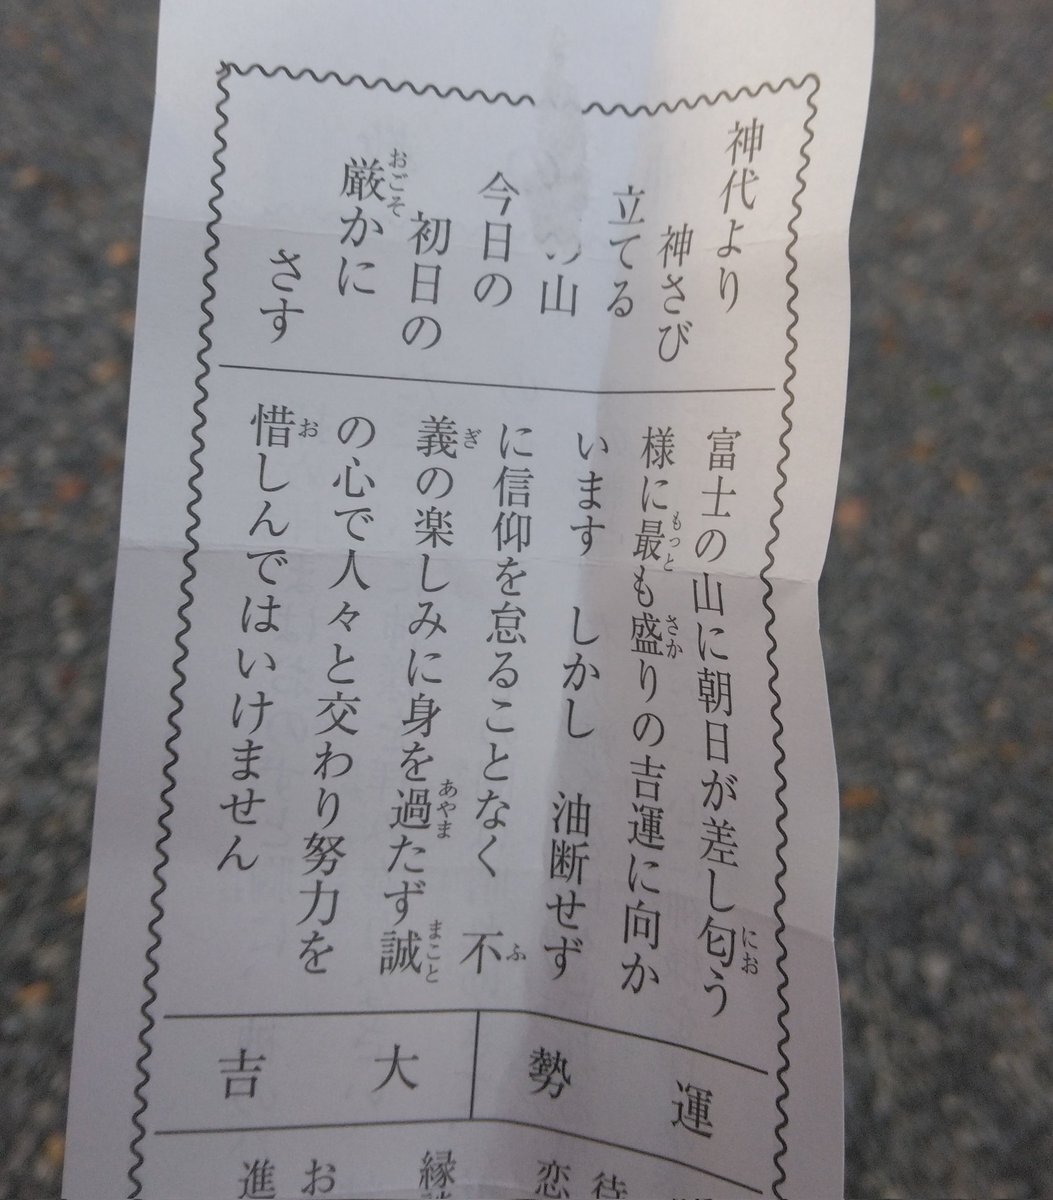 神代より
神さび
立てる
山
今日の
初日の
厳かに
おごそ
さす
富士の山に朝日が差し匂う
にお
様に最も盛りの吉運に向か
もっと
さか
います しかし 油断せず
に信仰を怠ることなく 不
ふ
義の楽しみに身を過たず誠
ぎ
あやま
まこと
の心で人々と交わり努力を
惜しんではいけません
お
運勢
大吉
待
恋
縁
お
進